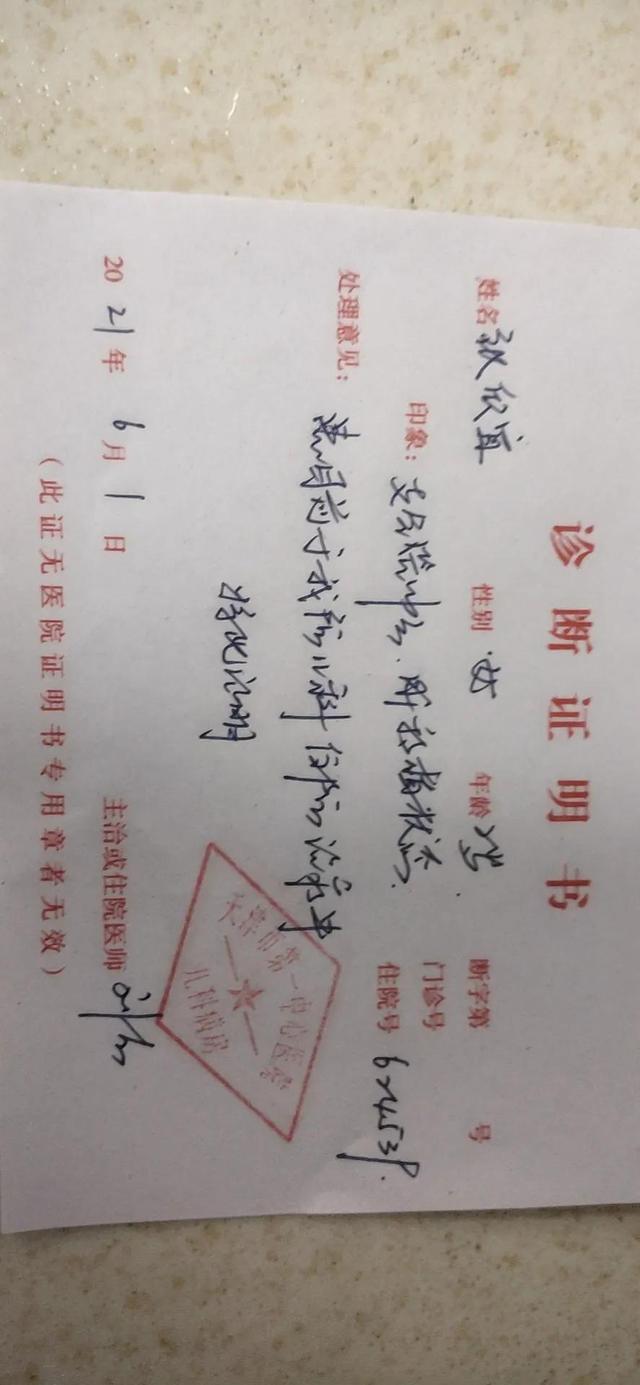 诊断证明书
姓名 张欣宜 性别 女 年龄 2岁 断字第 号
门诊号
印象: 支气管肺炎. 住院号 622453
处理意见:
患儿目前于我院儿科住院治疗中
特此证明
天津市第一中心医院
儿科病房
主治或住院医师
2021年6月1日
(此证无医院证明书专用章者无效)